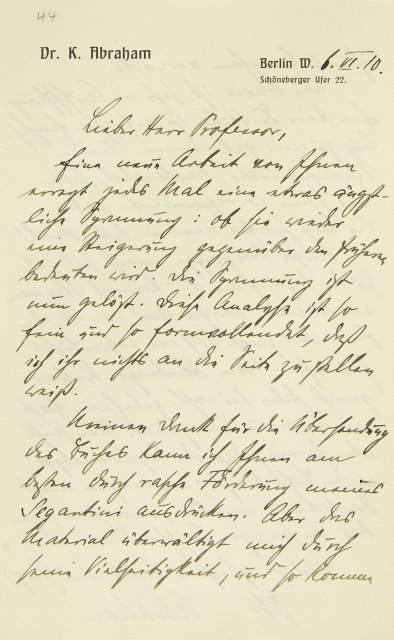 44
Dr. K. Abraham
Berlin W. 6. VI. 10.
Schöneberger Ufer 22.
Lieber Herr Professor,
Eine neue Arbeit von Ihnen
erregt jedes Mal eine etwas ängst-
liche Spannung: ob sie wieder
eine Steigerung gegenüber den früheren
bedeuten wird. Die Spannung ist
nun gelöst. Diese Analyse ist so
fein und so formvollendet, daß
ich ihr nichts an die Seite zu stellen
weiß.
Meinen Dank für die Übersendung
des Buches kann ich Ihnen am
besten durch rasche Förderung meines
Segantini ausdrücken. Aber das
Material überwältigt mich durch
seine Vielseitigkeit, und so kommen